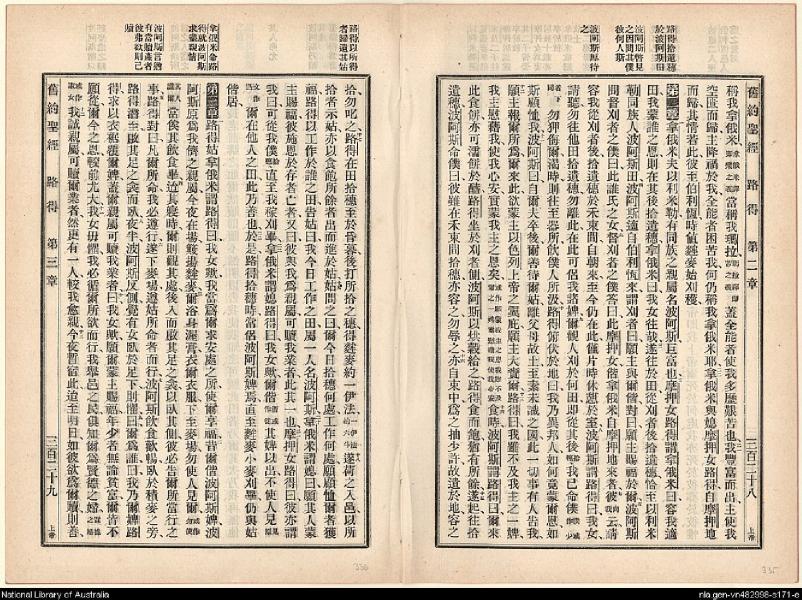 路得拾遺穗
於波阿斯田
波阿斯瞥見
之問其僕
彼何人斯
波阿斯厚待
之
舊約聖經 路得 第二章 三百二十八 上帝
稱我拿俄米當稱我瑪拉蓋全能者使我多歷艱苦也我豐富而出主使我
空匱而歸主降禍於我全能者困苦我何仍稱我拿俄米耶拿俄米與媳摩押女路得自摩押地
而歸其情若此彼至伯利恆時値麰麥始刈穫
第二章拿俄米夫以利米勒有同族之親屬名波阿斯巨富也摩押女路得謂拿俄米曰容我適
田我蒙誰之恩則在其後拾遺穗拿俄米曰我女往哉遂往於田從刈者後拾遺穗恰至以利米
勒同族人波阿斯田波阿斯適自伯利恆來謂刈者曰願主與爾偕對曰願主賜福於爾波阿斯
問督刈者之僕曰此誰氏之女督刈者之僕答曰此摩押女偕拿俄米自摩押地來者彼云請
容我從刈者後拾遺穗於禾束間自朝來至今仍在此僅片時休憩於室波阿斯謂路得曰我女
請聽勿往他田拾遺穗勿離此在此可偕我諸婢觀人刈於何田卽從其後我已命僕
勿犯爾渴時則往至器所飲僕人所汲路得俯伏於地曰我乃異邦人如何竟蒙爾恩如
斯顧恤我波阿斯曰自爾夫卒後爾善待爾姑離父母故土至素未識之國此一切事有人告我
願主報爾所爲爾來此欲蒙主以色列上帝之翼庇願主大賚爾路得曰我雖不及我主之一婢
我主慰藉我使我心安實蒙我主之恩矣食時波阿斯謂路得曰爾來
此食餅亦可濡餅於醯路得坐於刈者側波阿斯以烘穀給之路得食而飽猶有所餘遂起往拾
遺穗波阿斯命僕曰彼雖在禾束間拾穗亦容之勿辱之亦自束中爲之抽少許故遺於地容之
路得以所得
者歸遺其姑
拿俄米命路
得就波阿斯
求盡親情
波阿斯言猶
有當贖產者
彼弗欲則己
贖
拾勿叱之路得在田拾穗至於昏暮後打所拾之穗得麰麥約一伊法遂荷之入邑以所
拾者示姑亦以食飽所餘者出而進於姑姑問之曰爾今日拾穗何處工作何處願顧恤爾者獲
福路得以工作於誰之田告姑曰我今日工作之田屬一人名波阿斯拿俄米謂媳曰願其人蒙
主賜福彼施恩於存者亡者又曰彼與我爲親屬可贖我業者此其一也摩押女路得曰彼亦謂
我曰可從我僕直至我稼刈畢拿俄米謂媳路得曰我女歟爾偕其婢以出不使人見
爾在他人之田此乃善也於是路得拾穗時常偕波阿斯婢焉直至麰麥小麥刈畢仍與姑
偕居
第三章路得姑拿俄米謂路得曰我女歟我當爲爾求安處之所使爾享福昔爾偕波阿斯婢波
阿斯原爲我儕之親屬今夜在場簸揚麰麥爾浴身渥膏衣爾衣服下至麥場勿使人見爾
當俟其飲食畢迨其寢時爾則觀其處後入而啟其足之衾以臥其側彼必告爾所當行之
事路得對曰凡爾所命我必遵行遂下麥場遵姑所命者而行波阿斯飲食歡暢臥於積麥之旁
路得潛至啟其足之衾而臥夜半波阿斯反側覺有女臥於足下則懼曰爾爲誰曰我乃爾婢路
得求以衣裾覆爾婢蓋爾親屬可贖我業者曰我女歟願爾蒙主賜福年少者無論貧富爾皆不
願從爾今之恩較前尤大我女毋懼我必循爾所欲而行我舉邑之民俱知爾爲賢德之婦
我誠親屬可贖爾業者然更有一人較我愈親今夜暫宿此迨至明日如彼欲爲爾贖則善
舊約聖經 路得 第三章 三百二十九 上帝
336
335
National Library of Australia
nla.gen-vn482998-s171-e